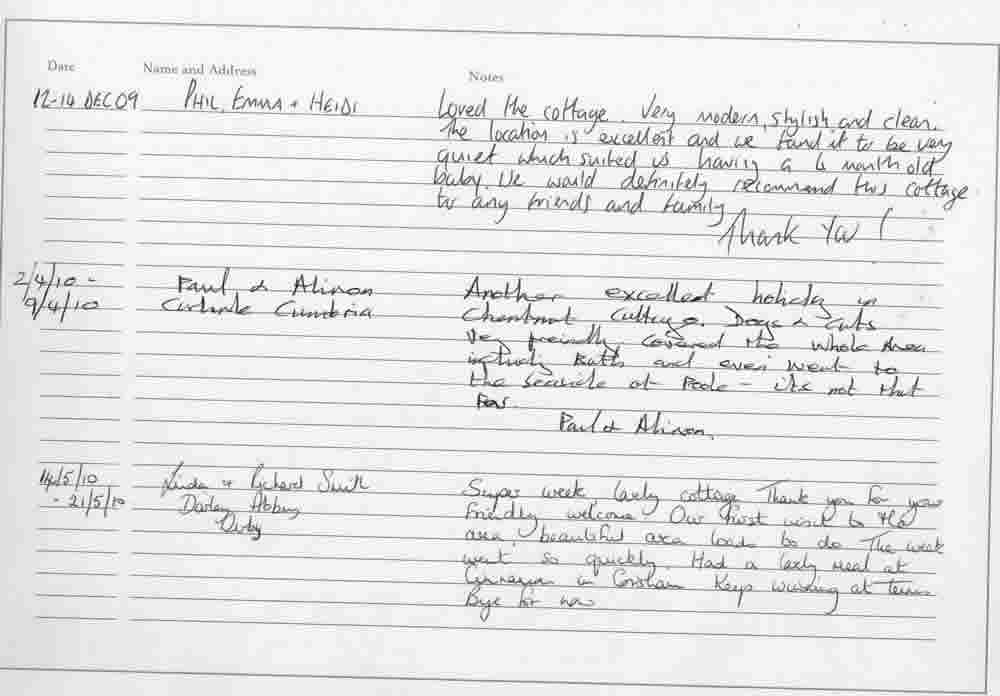 Date Name and Address Notes
12-14 DEC 09 PHIL, EMMA + HEIDI Loved the cottage. Very modern, stylish and clean.
The location is excellent and we found it to be very
quiet which suited us having a 6 month old
baby. We would definitely recommend this cottage
to any friends and family
Thank You!
2/4/10 - Paul & Alison Another excellent holiday in
9/4/10 Carlisle Cumbria Chestnut Cottage. Dogs & Cats
very friendly, covered the whole Area
including Bath and even went to
the seaside at Poole - its not that
far.
Paul & Alison.
14/5/10 Linda & Richard Smith Super week, lovely cottage Thank you for your
- 21/5/10 Darley Abbey friendly welcome. Our first visit to the
Derby area, beautiful area loads to do The week
went so quickly. Had a lovely meal at
in Corsham Keep working at tennis
Bye for now